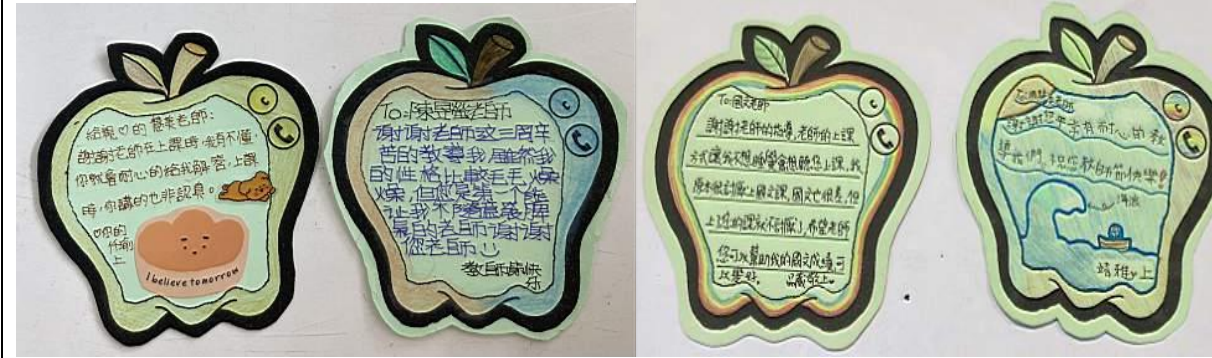 給親♡的慧美老師:
謝謝老師在上課時,我有不懂,
你就會耐心的給我解答,上課
時,你講的也非認真。
♡你的
上
I believe tomorrow
To:陳昱璇老師
谢谢老师这三周辛
苦的教導我,虽然我
的性格比較毛毛燥
燥,但您是第一个能
让我不随意發脾
氣的老师谢谢
您老师
教师節快
乐
To:國文老師
謝謝老師的指導,老師的上課
方式讓我不想睡覺會想聽您上課,我
原本很討厭上國文課,國文也很差,但
上您的課就不討厭了,希望老師
您可以幫助我的國文成績可
以變好。 敬上
To:
謝謝您平常有耐心的教
導我們,祝您教師節快樂!
海浪
靖雅 上